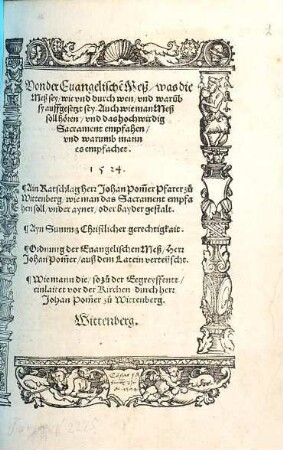 Von der Euangelischẽ Meß / was die
Meß sey / wie vnd durch wen / vnd warũb
sy auffgesetzt sey. Auch wie man Meß
soll hören / vnd das hochwirdig
Sacrament empfahen /
vnd warumb mann
es empfachet.
1524.
¶ Ain Ratschlag herr Johan Pom̃er Pfarer zů
Wittenberg / wie man das Sacrament empfa
hen soll, vnder ayner / oder bayder gestalt.
¶ Ayn Summ͛ Christlicher gerechtigkait.
¶ Ordnung der Euangelischen Meß / herr
Johan Pom̃er / auß dem Latein verteüscht.
¶ Wie mann die / so zů der Ee greyffennt /
einlaitet vor der Kirchen durch herr
Johan Pom̃er zů Wittenberg.
Wittenberg.